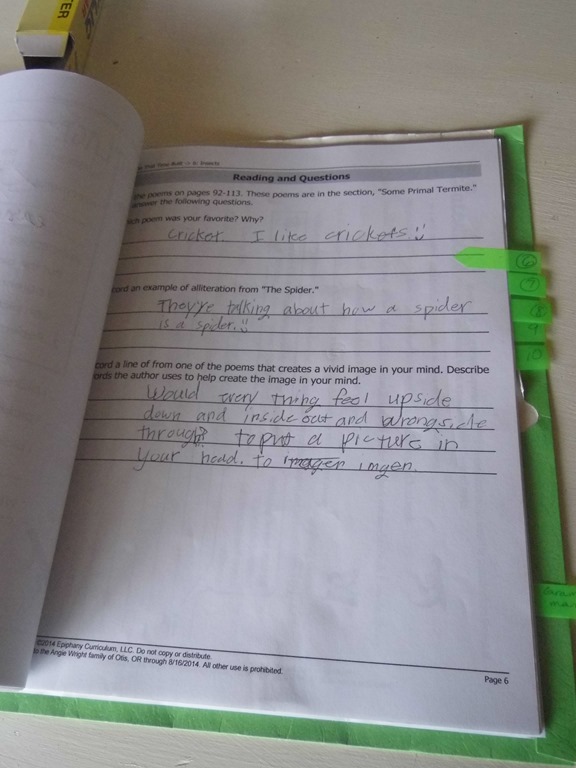 TER
Reading and Questions
the poems on pages 92-113. These poems are in the section, "Some Primal Termite."
answer the following questions.
ich poem was your favorite? Why?
Cricket. I like crickets.
cord an example of alliteration from "The Spider."
They're talking about how a spider
is a spider.
cord a line of from one of the poems that creates a vivid image in your mind. Describe
ords the author uses to help create the image in your mind.
Would every thing feel upside
down and inside out and wrongside
through? to put a picture in
your head. to imgen.
©2014 Epiphany Curriculum, LLC. Do not copy or distribute.
to the Angie Wright family of Otis, OR through 8/16/2014. All other use is prohibited.
Page 6
6
7
8
9
10